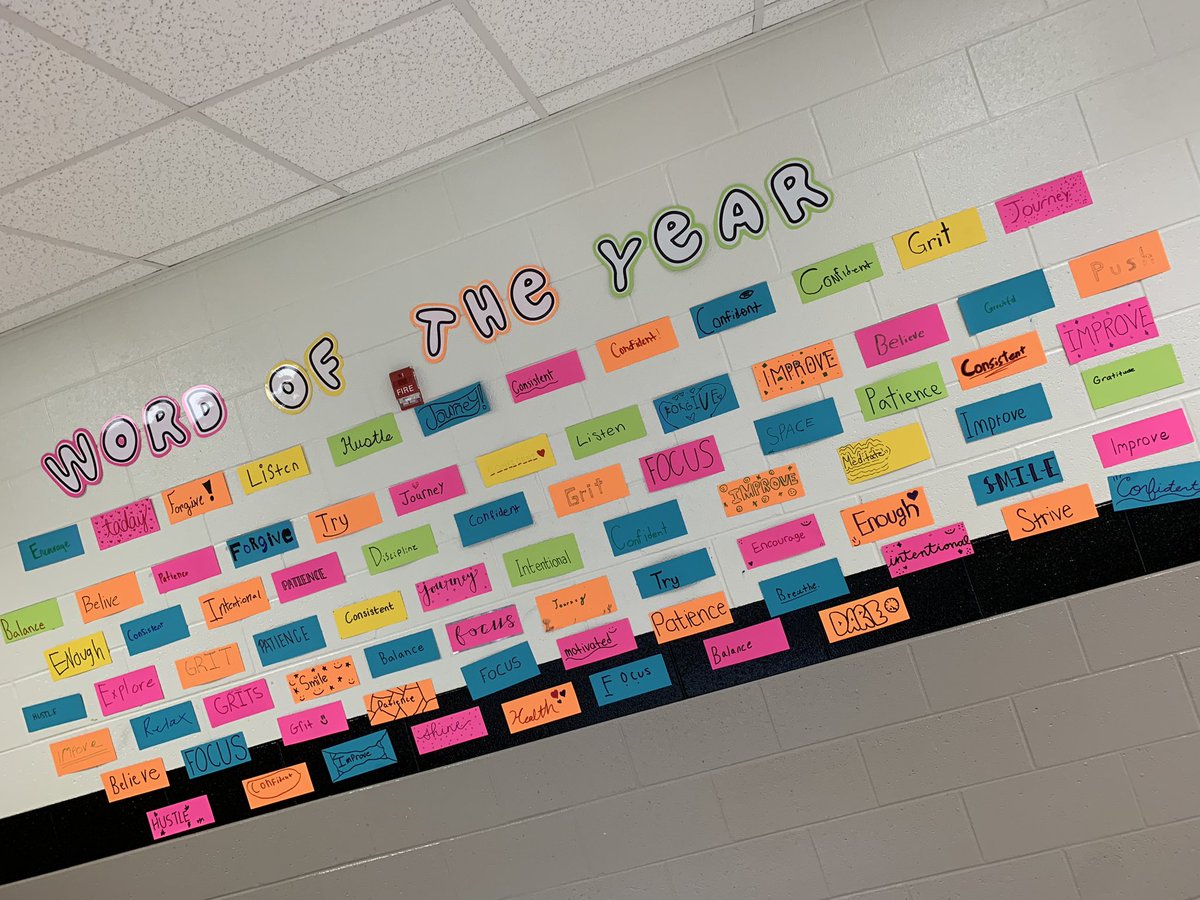 WORD OF THE YEAR
FIRE
Encourage
today
Forgive!
Listen
Hustle
Journey!
Consistent
Confident!
Confident
Confident
Grit
Journey
Balance
Belive
Patience
FORGIVE
Try
Journey
Listen
FORGIVE
IMPROVE
Believe
Grateful
Push
Enough
Consistent
Intentional
PATIENCE
Discipline
Confident
Grit
FOCUS
SPACE
Patience
Consistent
IMPROVE
HUSTLE
Explore
GRIT
PATIENCE
Consistent
Journey
Intentional
Confident
IMPROVE
Meditate
Improve
Gratitude
IMPROVE
Relax
GRITS
Smile
Balance
FOCUS
Journey
Try
Encourage
Enough
SMILE
Improve
Believe
FOCUS
Grit
Patience
FOCUS
motivated
Patience
Breathe
intentional
Strive
"Confident
HUSTLE
Confident
Improve
shine
Health
FOCUS
Balance
DARE